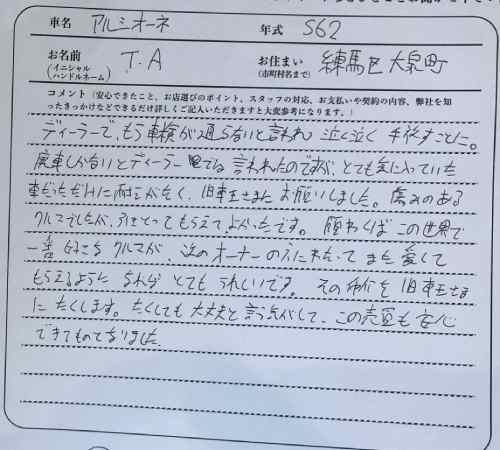 車名 アルシオーネ 年式 S62
お名前 (イニシャル ハンドルネーム) T.A お住まい (市町村名まで) 練馬区大泉町
コメント (安心できたこと、お店選びのポイント、スタッフの対応、お支払いや契約の内容、弊社を知
ったきっかけなどできるだけ詳しくご記入いただきますと大変参考になります。)
ディーラーで、もう車検が通らないと言われ 泣く泣く 手放すことに。
廃車しかないとディーラーでは 言われたのですが、とても気に入っていた
車だっただけに耐えがたく、旧車王さまに お願いしました。傷みのある
クルマでしたが、引きとってもらえてよかったです。願わくば この世界で
一番 好きな クルマが、次の オーナーの 元に また 愛して
もらえるように なれば とても うれしいです。その仲介を 旧車王さま
に たくします。たくしても 大丈夫と 言う気がして、この売買も 安心
できてものになりました